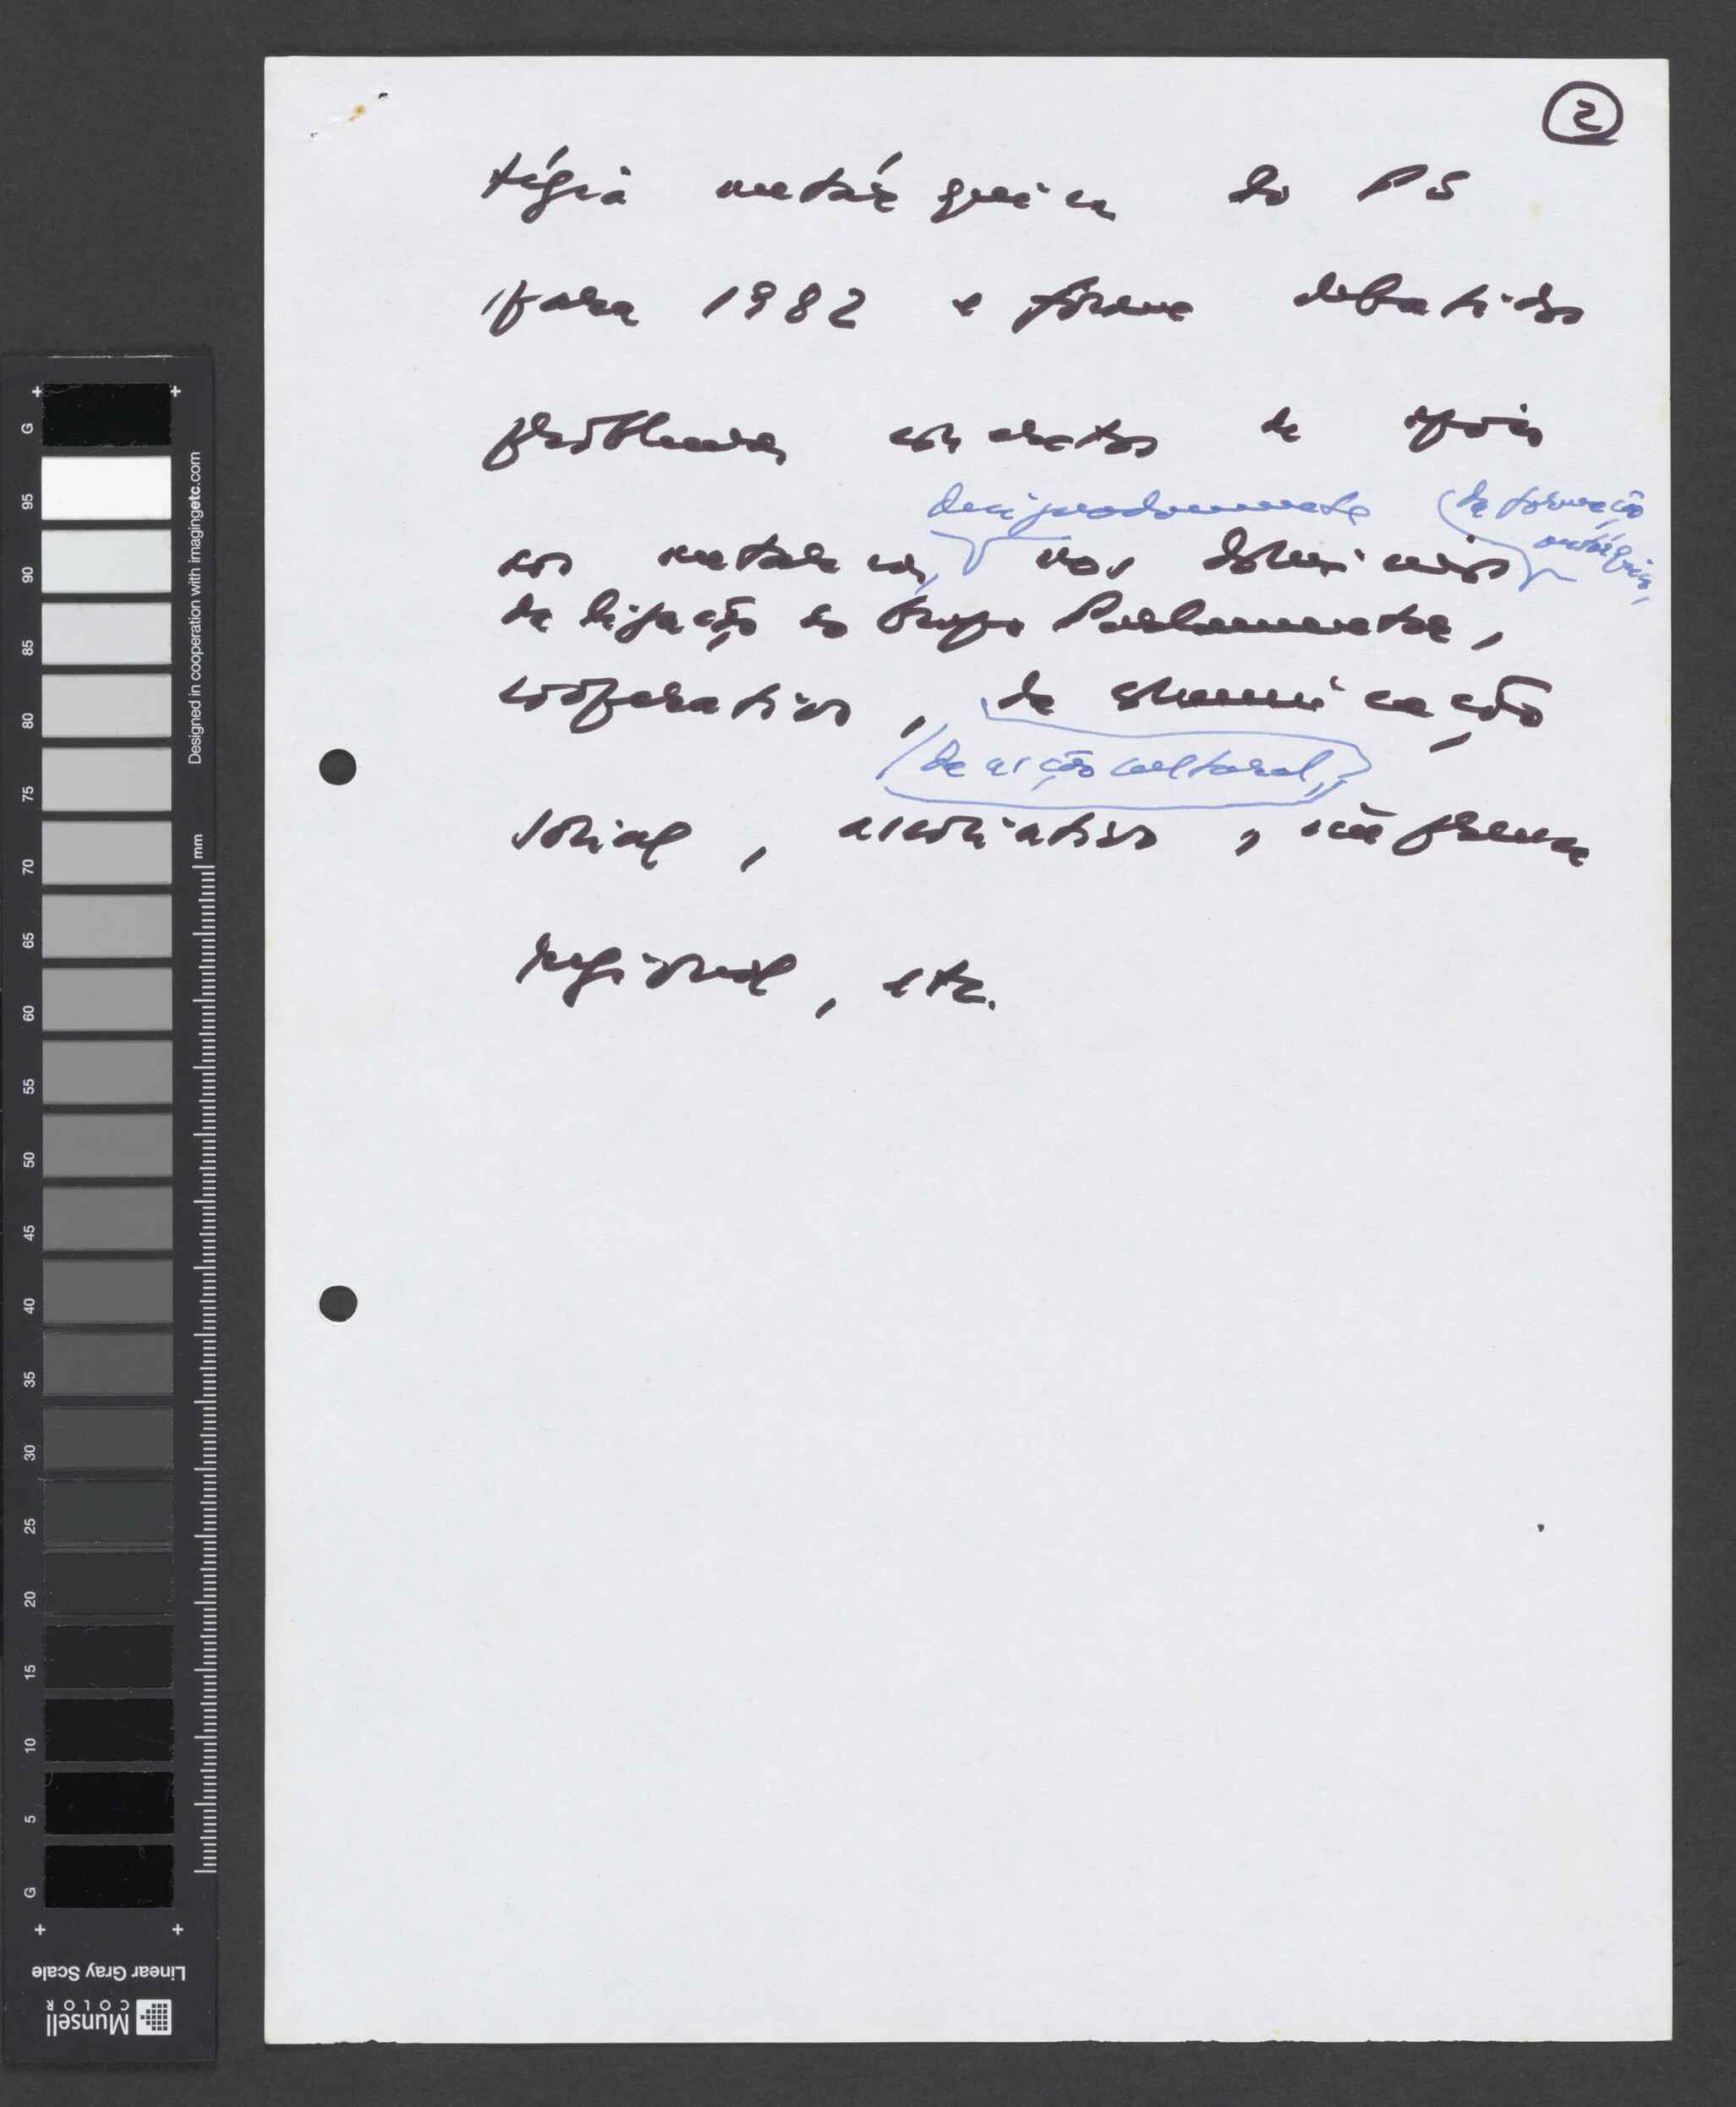 2
tégia autárquica do PS
para 1982 e foram debatidos
problemas concretos de apoio
designadamente (de formação
autárquica,
aos autarcas, nos domínios
da ligação ao Grupo Parlamentar,
cooperativo, de comunicação
(de acção cultural,)
social, associativo, imprensa
regional, etc.
G 95 90 85 80 75 70 65 60 55 50 45 40 35 30 25 20 15 10 5 G
Designed in cooperation with imagingetc.com
mm
Linear Gray Scale
Munsell
COLOR